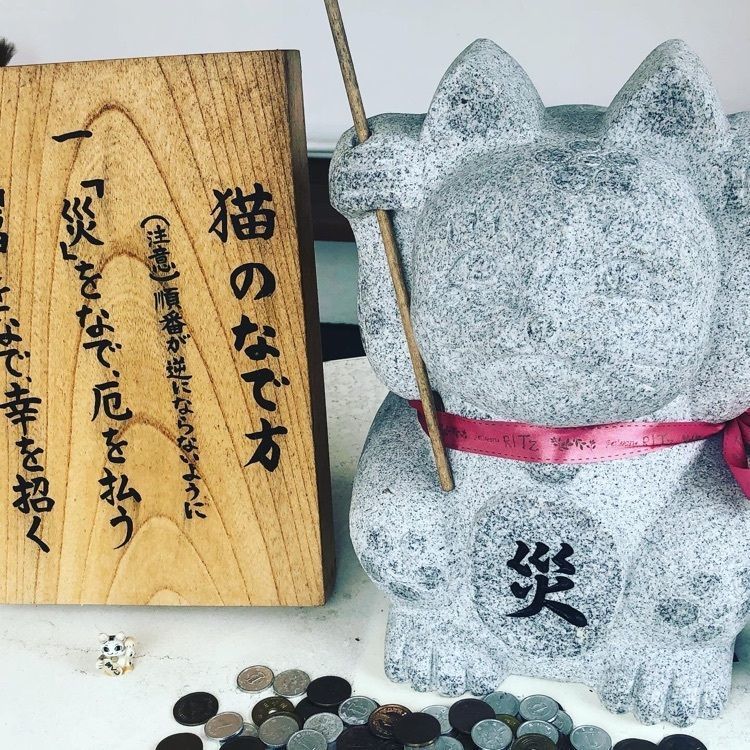 猫のなで方
(注意)順番が逆にならないように
一「災」をなで、厄を払う
なで、幸を招く
RITZ
災